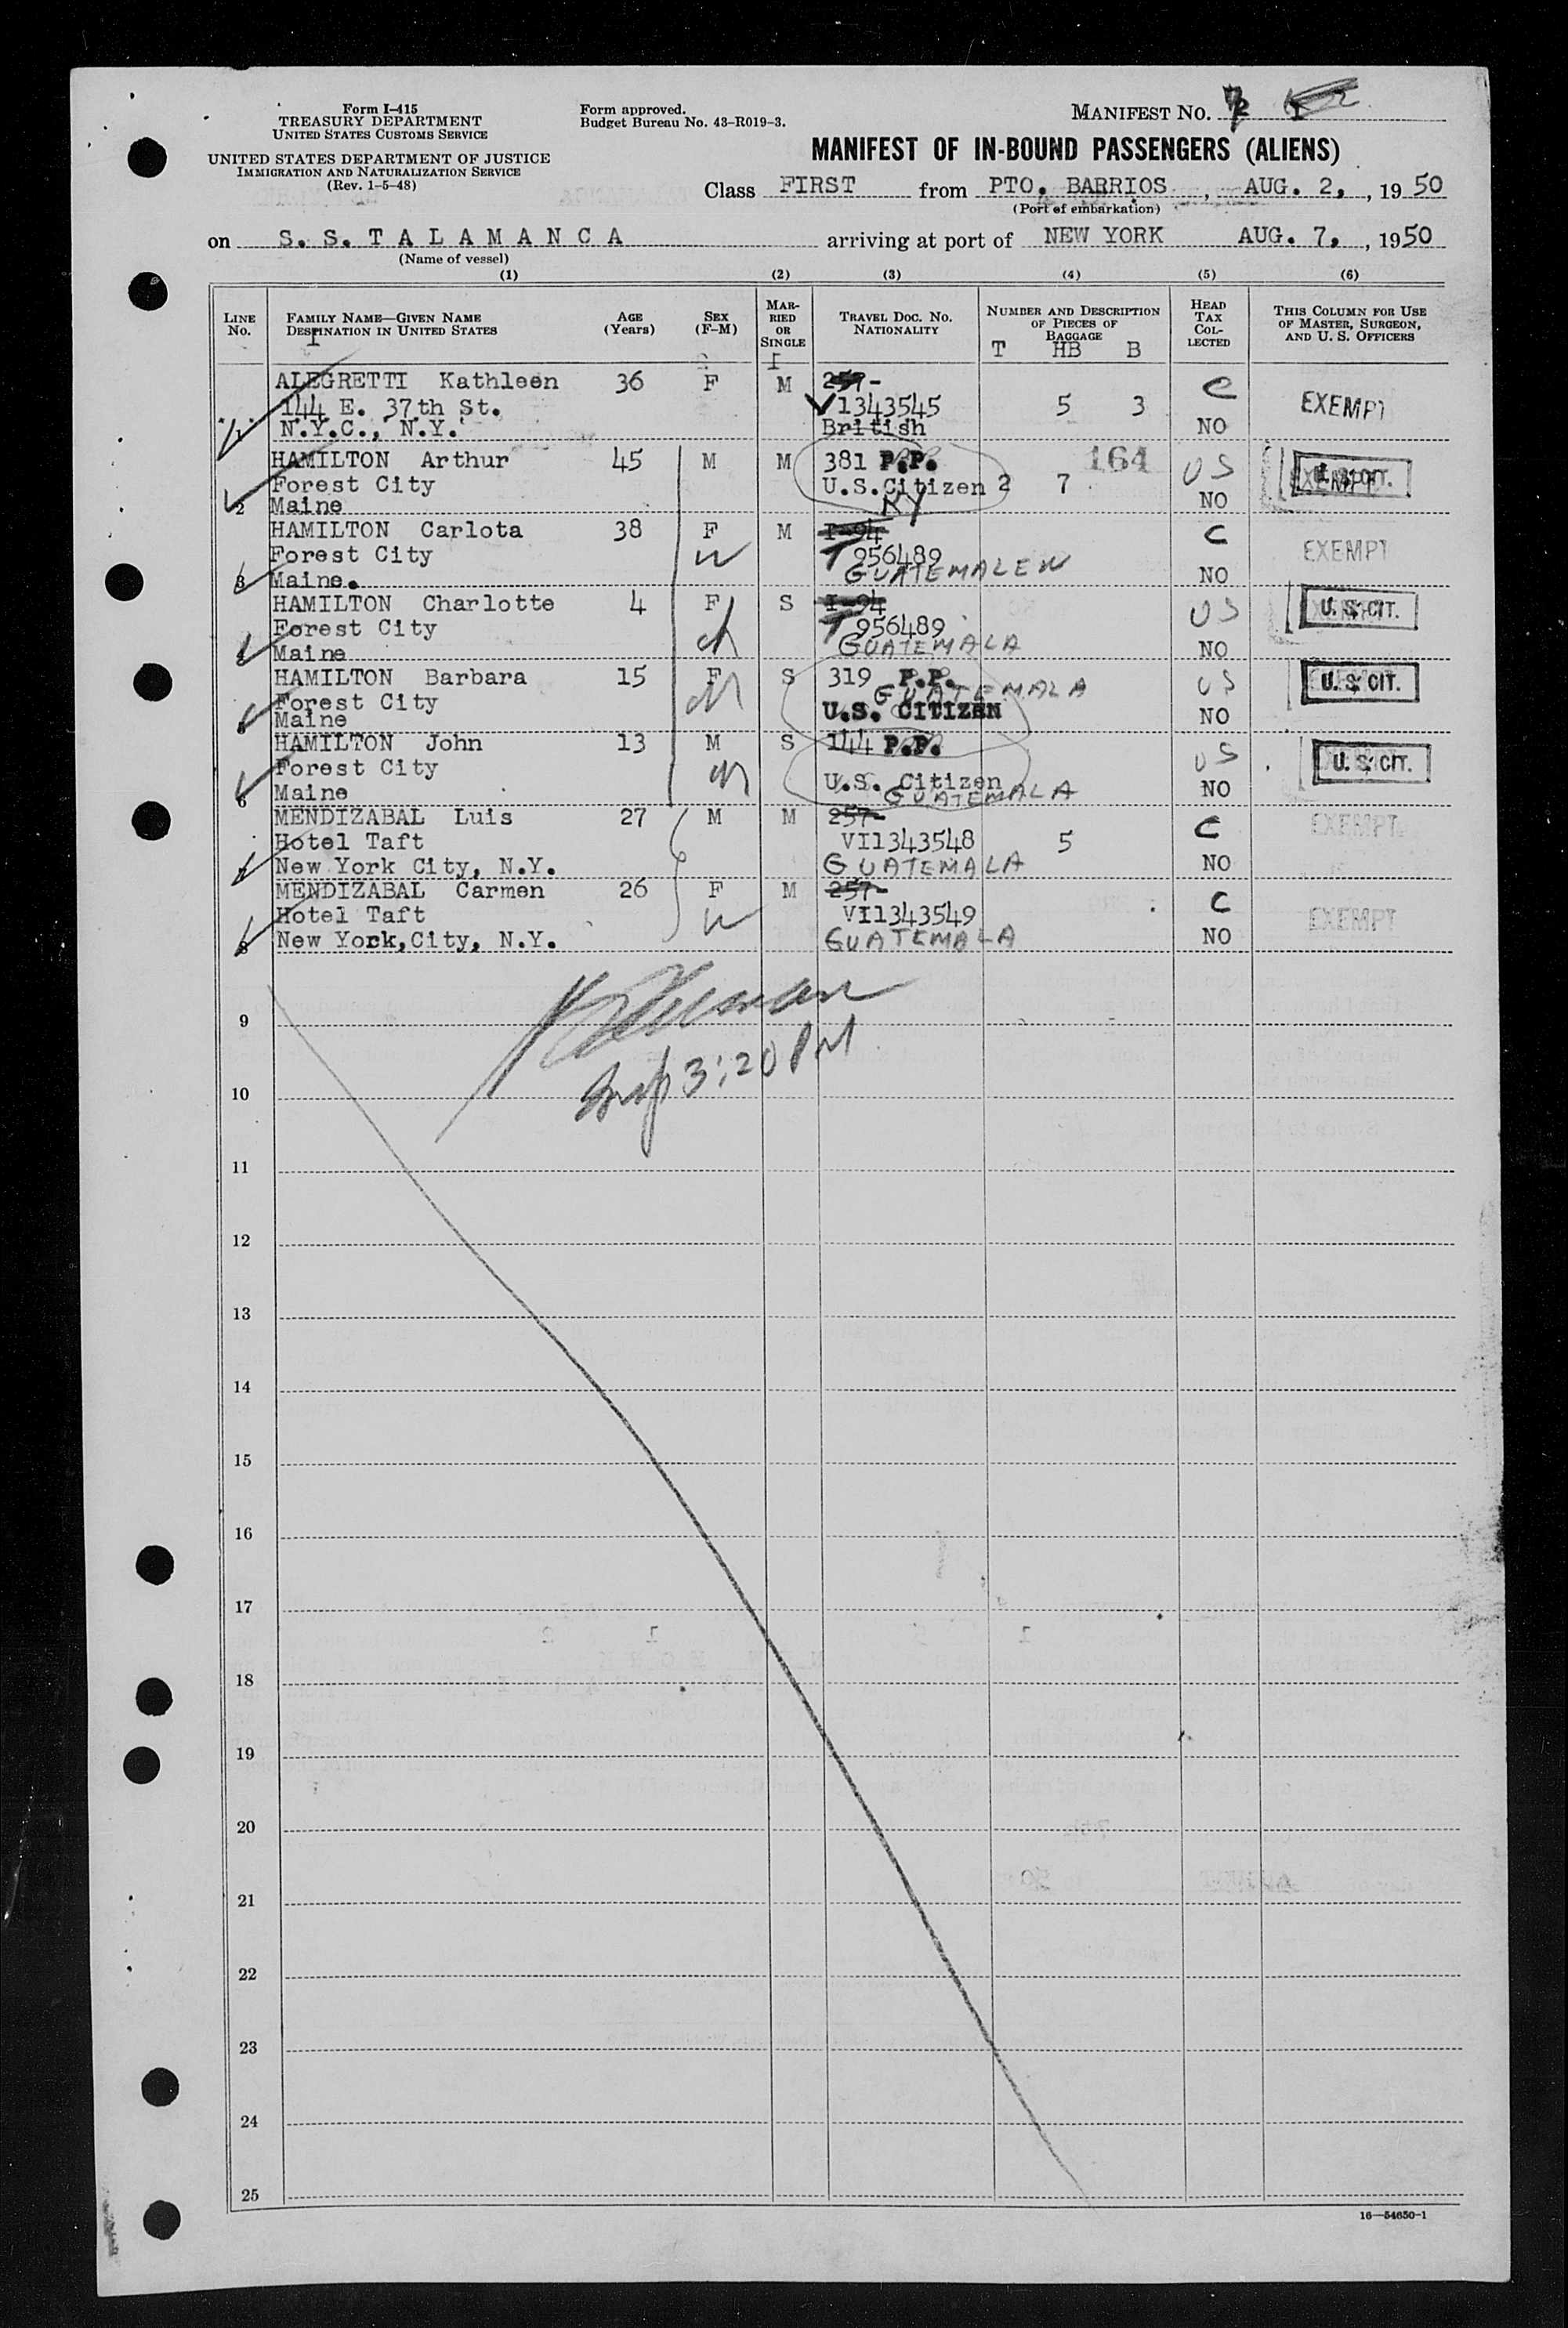 Form I-415
TREASURY DEPARTMENT
UNITED STATES CUSTOMS SERVICE
UNITED STATES DEPARTMENT OF JUSTICE
IMMIGRATION AND NATURALIZATION SERVICE
(Rev. 1-5-48)
Form approved.
Budget Bureau No. 43-R019-3.
MANIFEST NO.
MANIFEST OF IN-BOUND PASSENGERS (ALIENS)
Class FIRST from PTO. BARRIOS, AUG. 2, 1950
(Port of embarkation)
on S. S. T A L A M A N C A arriving at port of NEW YORK AUG. 7, 1950
(Name of vessel)
(1) (2) (3) (4) (5) (6)
LINE No. FAMILY NAME—GIVEN NAME DESTINATION IN UNITED STATES AGE (Years) SEX (F-M) MARRIED OR SINGLE TRAVEL DOC. No. NATIONALITY NUMBER AND DESCRIPTION OF PIECES OF BAGGAGE HEAD TAX COLLECTED THIS COLUMN FOR USE OF MASTER, SURGEON, AND U. S. OFFICERS
T HB B
ALEGRETTI Kathleen 36 F M 257- C EXEMPT
144 E. 37th St. 1343545 5 3
1 N.Y.C., N.Y. British NO
HAMILTON Arthur 45 M M 381 P.P. 164 US U. S. CIT.
Forest City U.S.Citizen 2 7
2 Maine NY NO
HAMILTON Carlota 38 F M I-94 C EXEMPT
Forest City W T 956489
3 Maine. GUATEMALEN NO
HAMILTON Charlotte 4 F S I-94 US U. S. CIT.
Forest City ch T 956489
4 Maine GUATEMALA NO
HAMILTON Barbara 15 F S 319 P.P. US U. S. CIT.
Forest City GUATEMALA
5 Maine U.S. CITIZEN NO
HAMILTON John 13 M S 144 P.P. US U. S. CIT.
Forest City U.S. Citizen
6 Maine GUATEMALA NO
MENDIZABAL Luis 27 M M 257- C EXEMPT
Hotel Taft VI1343548 5
7 New York City, N.Y. GUATEMALA NO
MENDIZABAL Carmen 26 F M 257- C EXEMPT
Hotel Taft W VI1343549
8 New York,City, N.Y. GUATEMALA NO
9
3:20 PM
10
11
12
13
14
15
16
17
18
19
20
21
22
23
24
25
16—54650-1